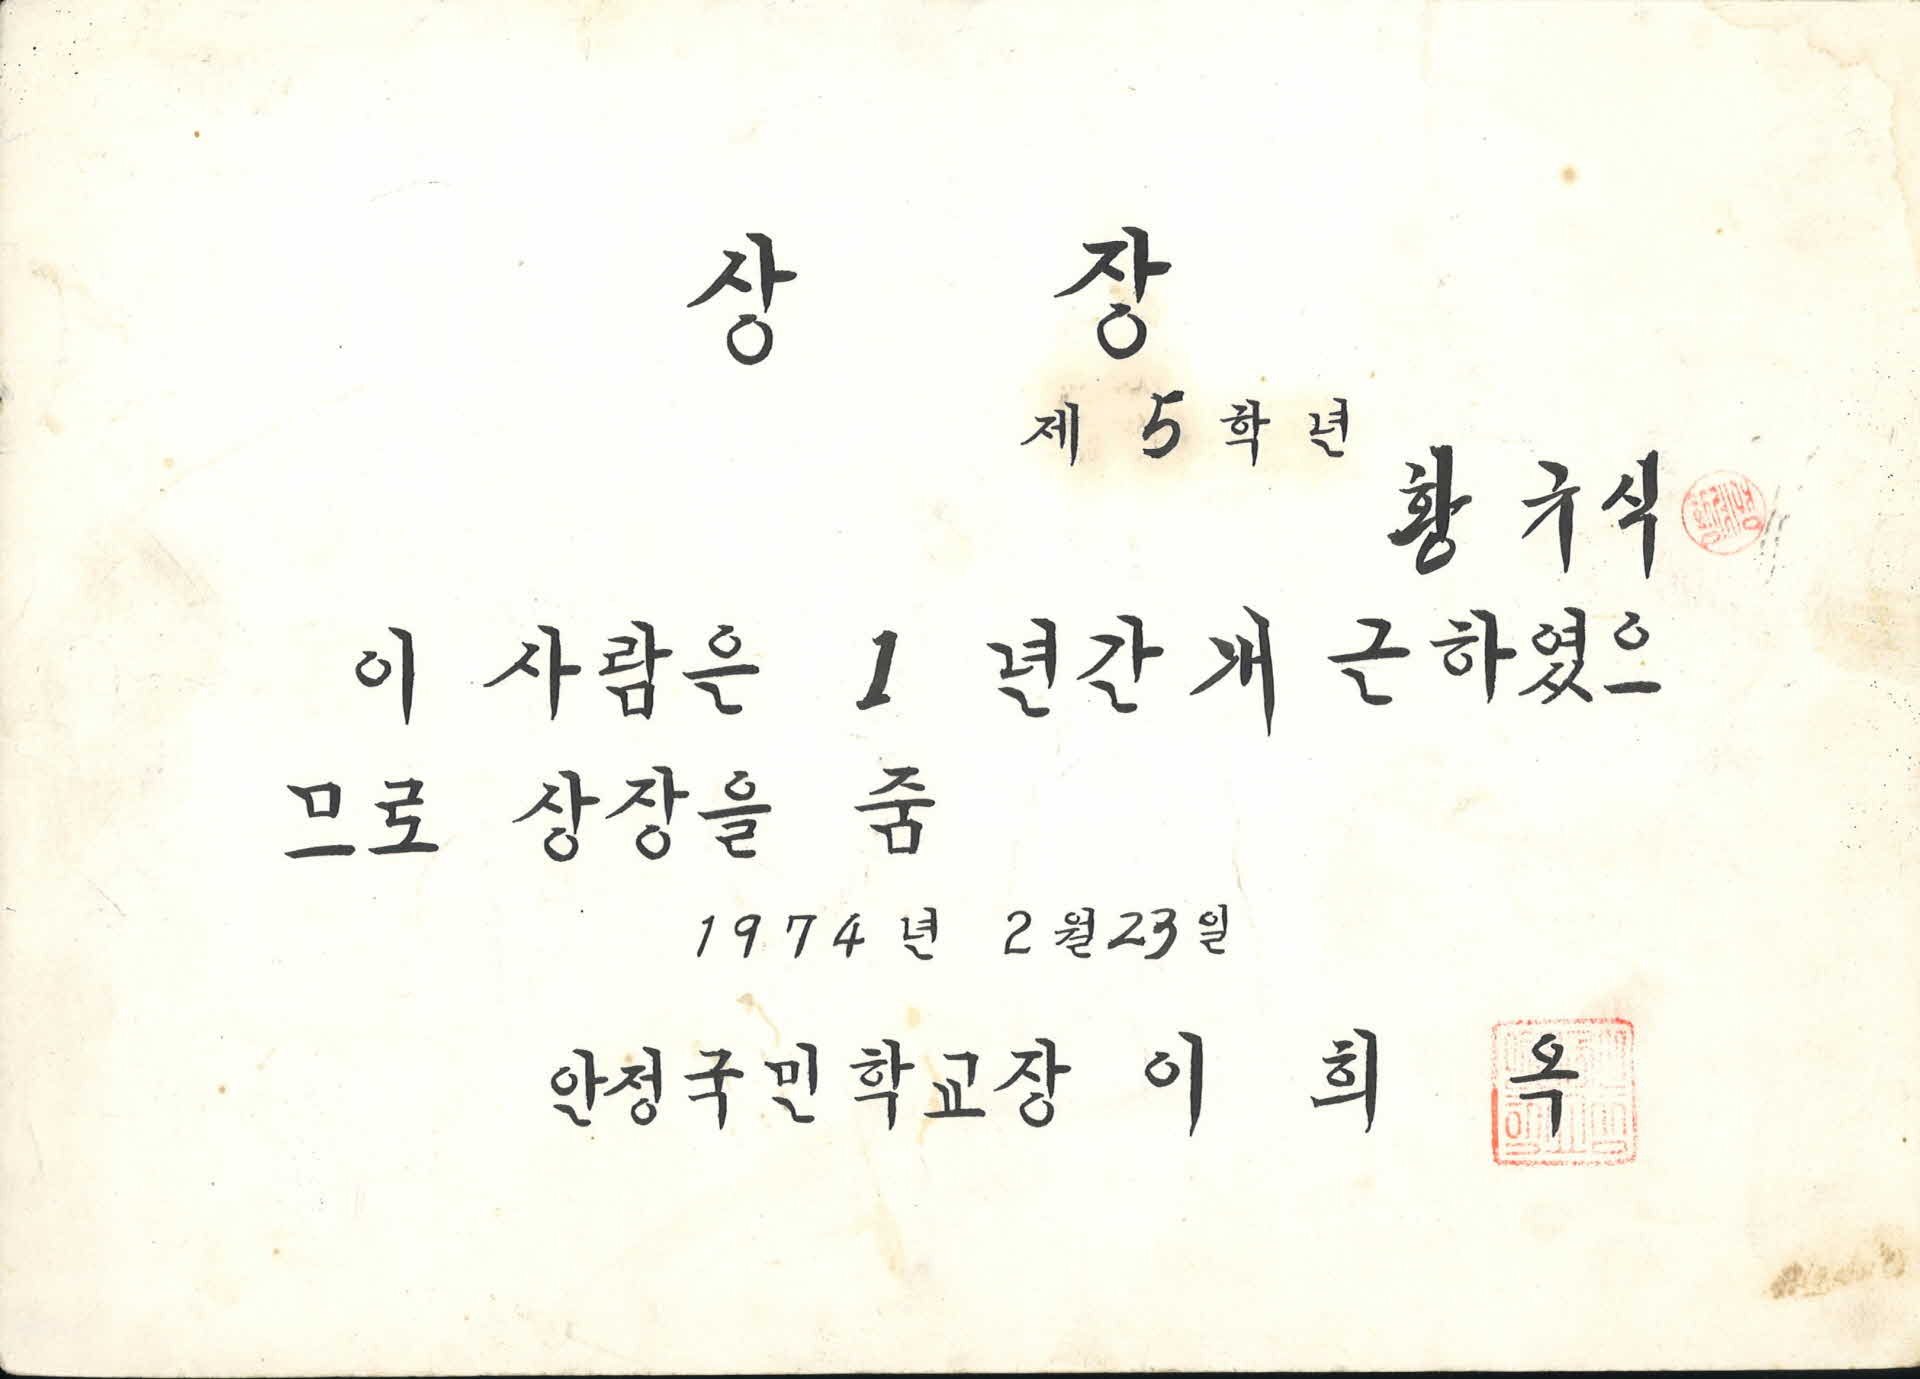 상 장
제 5 학 년
황 규 식
이 사람은 1 년간 개 근하였으
므로 상장을 줌
1974 년 2월23일
안정국민학교장 이 희 옥